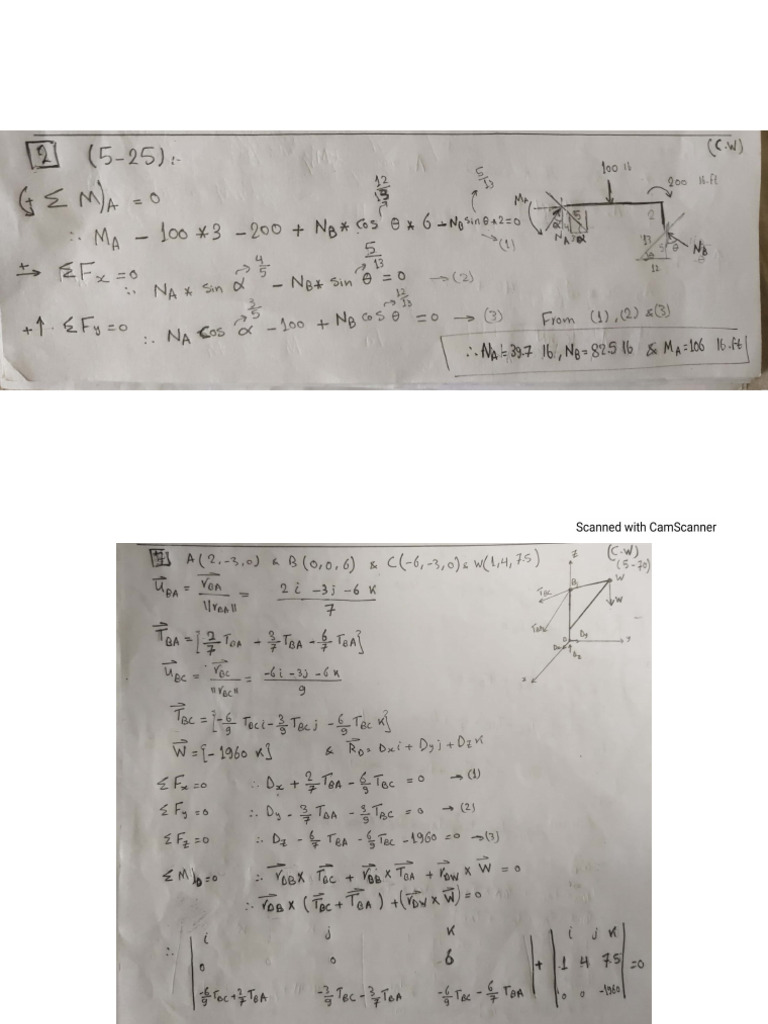 (C.W)
2 (5-25):-
(+ Σ M)A = 0
∴ MA - 100*3 - 200 + NB* cos θ * 6 - NB sin θ * 2 = 0
12/13
5/13
→ (1)
+→ ΣFx = 0
∴ NA * sin α - NB* sin θ = 0 → (2)
4/5
5/13
+↑ ΣFy = 0 ∴ NA cos α - 100 + NB cos θ = 0 → (3) From (1), (2) & (3)
3/5
12/13
∴ NA = 39.7 lb, NB = 82.5 lb & MA = 106 lb.ft
100 lb
200 lb.ft
MA
α
5
NA
α
2
θ
NB
12
Scanned with CamScanner
A(2,-3,0) & B(0,0,6) & C(-6,-3,0) & W(1,4,7.5)
(C.W)
(5-70)
uBA = rBA / ||rBA|| = 2i - 3j - 6k / 7
TBA = [2/7 TBA - 3/7 TBA - 6/7 TBA]
uBC = rBC / ||rBC|| = -6i - 3j - 6k / 9
TBC = [-6/9 TBC i - 3/9 TBC j - 6/9 TBC k]
W = [-1960 k] & RD = Dx i + Dy j + Dz k
ΣFx = 0 ∴ Dx + 2/7 TBA - 6/9 TBC = 0 → (1)
ΣFy = 0 ∴ Dy - 3/7 TBA - 3/9 TBC = 0 → (2)
ΣFz = 0 ∴ Dz - 6/7 TBA - 6/9 TBC - 1960 = 0 → (3)
ΣM)D = 0 ∴ rDB × TBC + rDB × TBA + rDW × W = 0
∴ rDB × (TBC + TBA) + (rDW × W) = 0
∴ | i j k | + | i j k | = 0
0 0 6 1 4 7.5
-6/9 TBC + 2/7 TBA -3/9 TBC - 3/7 TBA -6/9 TBC - 6/7 TBA 0 0 -1960
Z
B
W
TBC
W
TBA
D
Dy
Y
Dx
Dz
x